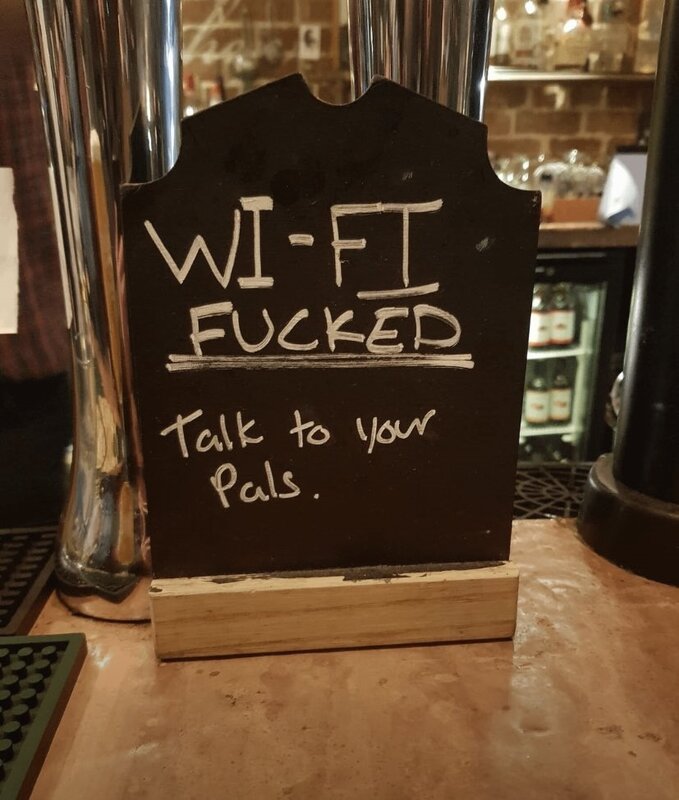 WI-FI
FUCKED
Talk to your
Pals.